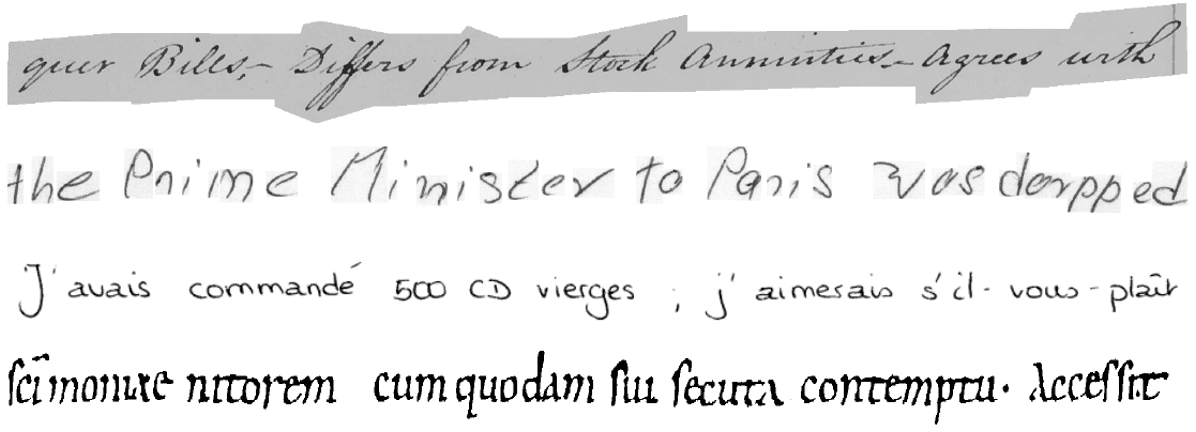 quer Bills,- Differs from Stock Annuities.- Agrees with
the Prime Minister to Paris was dorpped
J'avais commandé 500 CD vierges ; j'aimerais s'il-vous-plaît
sc̄imoniae nitorem cum quodam sui secuta contemptu. Accessit